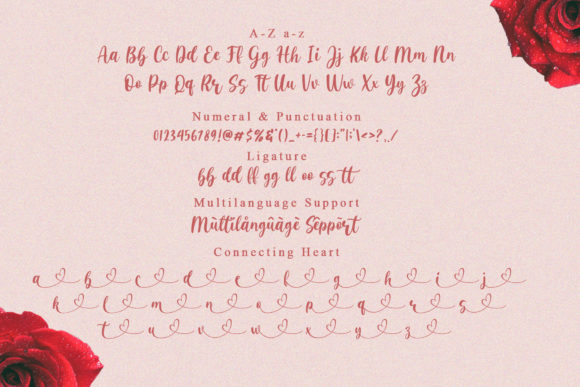 A-Z a-z
Aa Bb Cc Dd Ee Ff Gg Hh Ii Jj Kk Ll Mm Nn
Oo Pp Qq Rr Ss Tt Uu Vv Ww Xx Yy Zz
Numeral & Punctuation
0123456789!@#$%&*()_+-={}[]:"|;'\<>?,./
Ligature
bb dd ff gg ll oo ss tt
Multilanguage Support
Mùltílångûägè Sëppõrt
Connecting Heart
a b c d e f g h i j
k l m n o p q r s
t u v w x y z